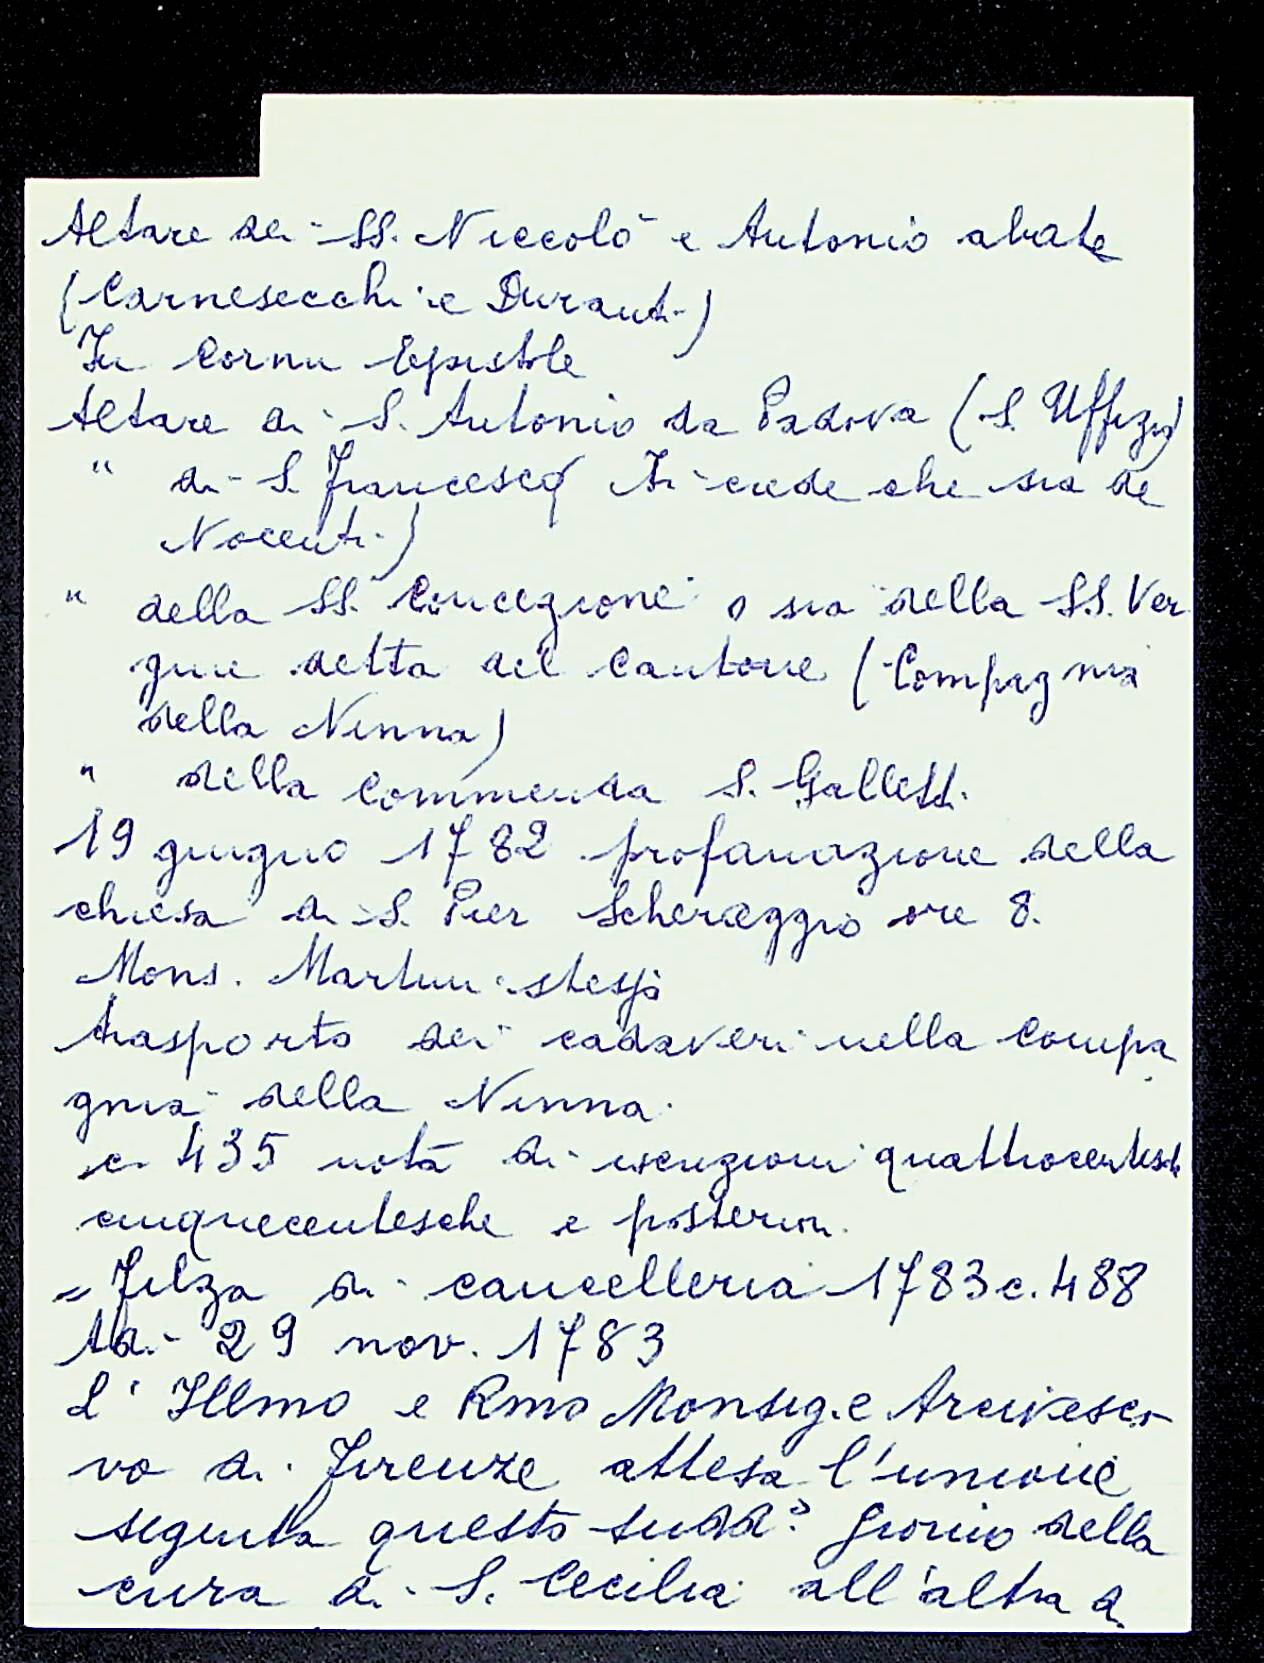 Altare dei SS. Niccolò e Antonio abate
(Carnesecchi e Duranti)
In Cornu Epistole
Altare di S. Antonio da Padova (S. Uffizio)
" di S. Francesco (si crede che sia de
Nocenti)
" della SS. Concezione o sia della SS. Ver
gine detta del Cantone (Compagnia
della Ninna)
" della Commenda S. Galletti
19 giugno 1782 profanazione della
chiesa di S. Pier Scheraggio ore 8.
Mons. Martini stesso
trasporto dei cadaveri nella Compa
gnia della Ninna.
c. 435 nota di iscrizioni quattrocentesche
cinquecentesche e posteriori.
= Filza di cancelleria 1783 c. 488
29 nov. 1783
L'Illmo e Rmo Monsig.e Arcivesco
vo di Firenze attesa l'unione
seguita questo sudd.o giorno della
cura di S. Cecilia all'altra di